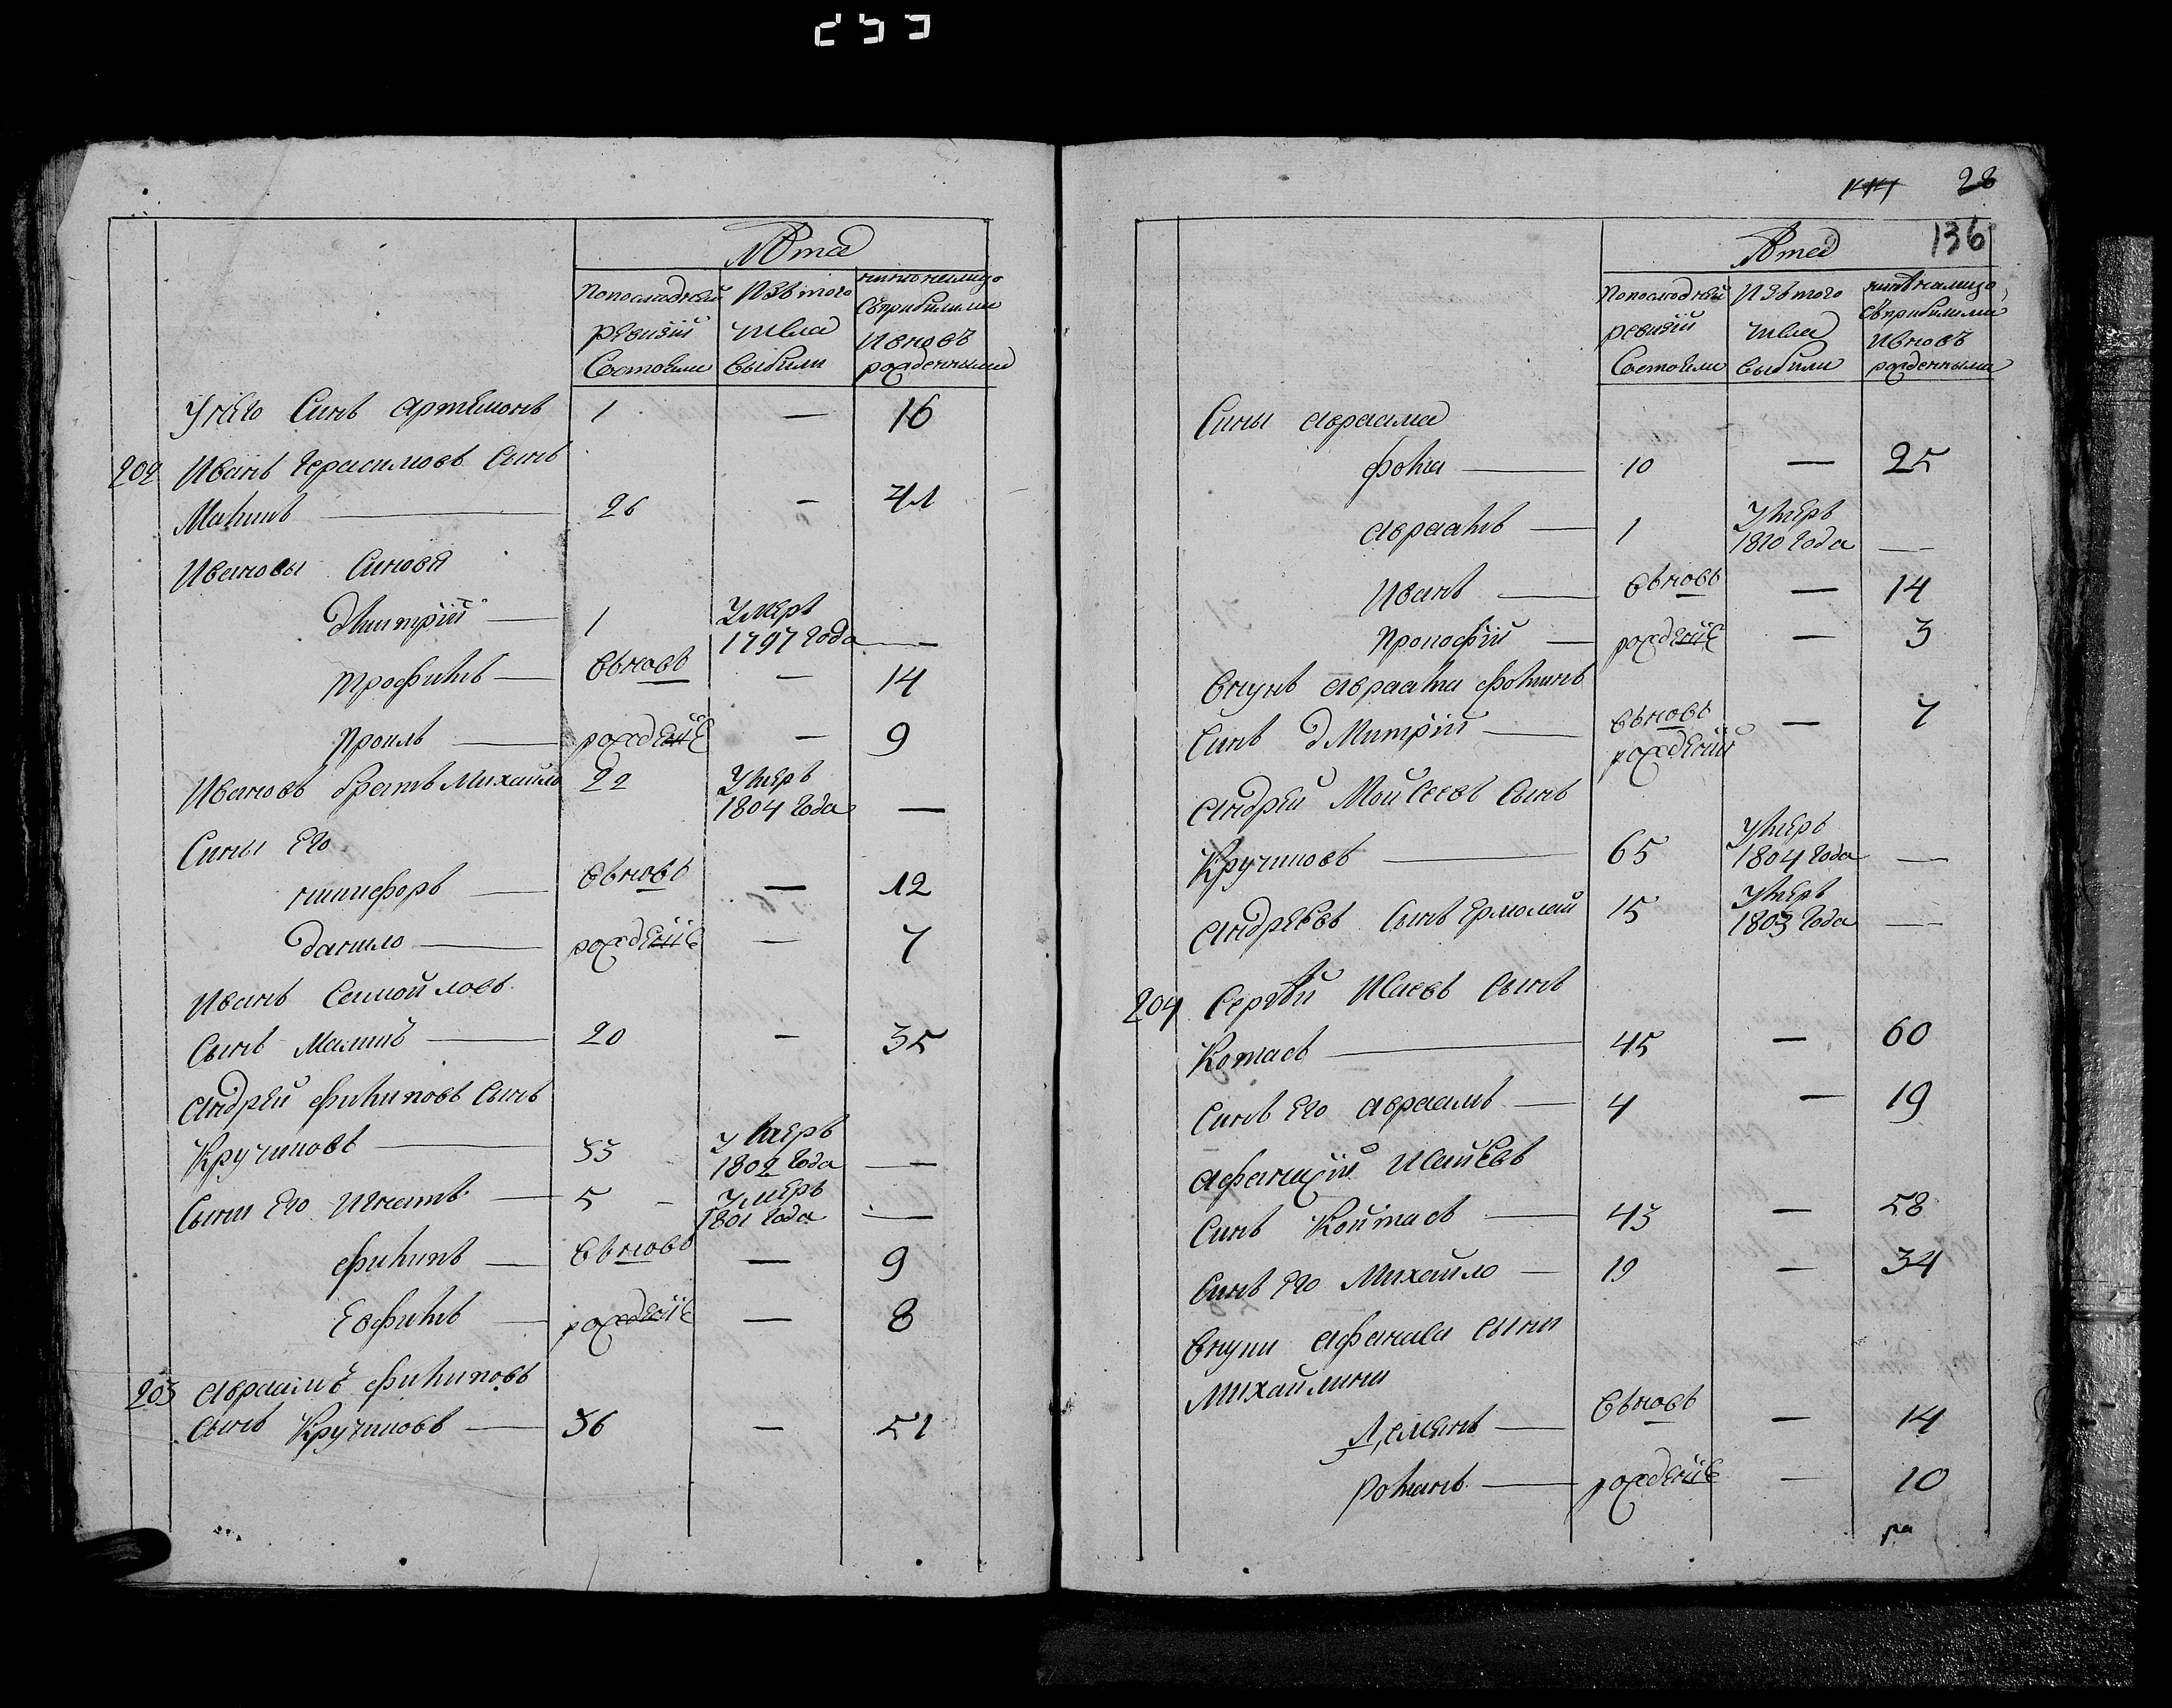 Лѣта
Попоследней ревизїи состояли
Изъ того числа выбыли
ныне налицо съ прибылыми и вновь рожденными
У него Сынъ Артемонъ 1 — 16
202 Иванъ Герасимовъ Сынъ
Мапинъ — 26 — 41
Ивановы Сыновя
Дмитрїй — 1 Умеръ 1797 года —
Трофимъ — вновь — 14
Прониъ — рожденїе — 9
Ивановъ братъ Михайло 22 Умеръ 1804 года —
Сыны Его
никифоръ — вновь — 12
Данило — рожденїе — 7
Иванъ Самойловъ
Сынъ Малинъ — 20 — 35
Андрей Филиповъ Сынъ
Кручиновъ — 33 Умеръ 1802 года —
Сыны Его Игнатъ — 5 — Умеръ 1801 года —
Филипъ — вновь — 9
Ефимъ — рожденїе — 8
203 Авраамъ Филиповъ
сынъ Кручиновъ — 36 — 51
144 28
136
Лѣта
Попоследней ревизїи Состояли
Изъ того числа выбыли
нынѣ налицо, съ прибылыми и вновь рожденными
Сыны Авраама
Фома — 10 — 25
Авраамъ — 1 Умеръ 1810 года —
Иванъ — вновь — 14
Прокофїй — рожденїе — 3
Внукъ Авраама Фоминъ
Сынъ Дмитрїй — вновь рожденїй — 7
Андрей Мойсеевъ Сынъ
Кручиновъ — 65 Умеръ 1804 года —
Андреевъ Сынъ Ермолай 15 Умеръ 1803 года —
204 Сергѣй Исаевъ Сынъ
Котаевъ — 45 — 60
Сынъ Его Авраамъ — 4 — 19
Афанасїй Исайевъ
Сынъ Койтаевъ — 43 — 58
Сынъ Его Михайло — 19 — 34
Внуки Афанасья Сыны
Михайлины
Семенъ — вновь — 14
Романъ — рожденїе — 10
ра